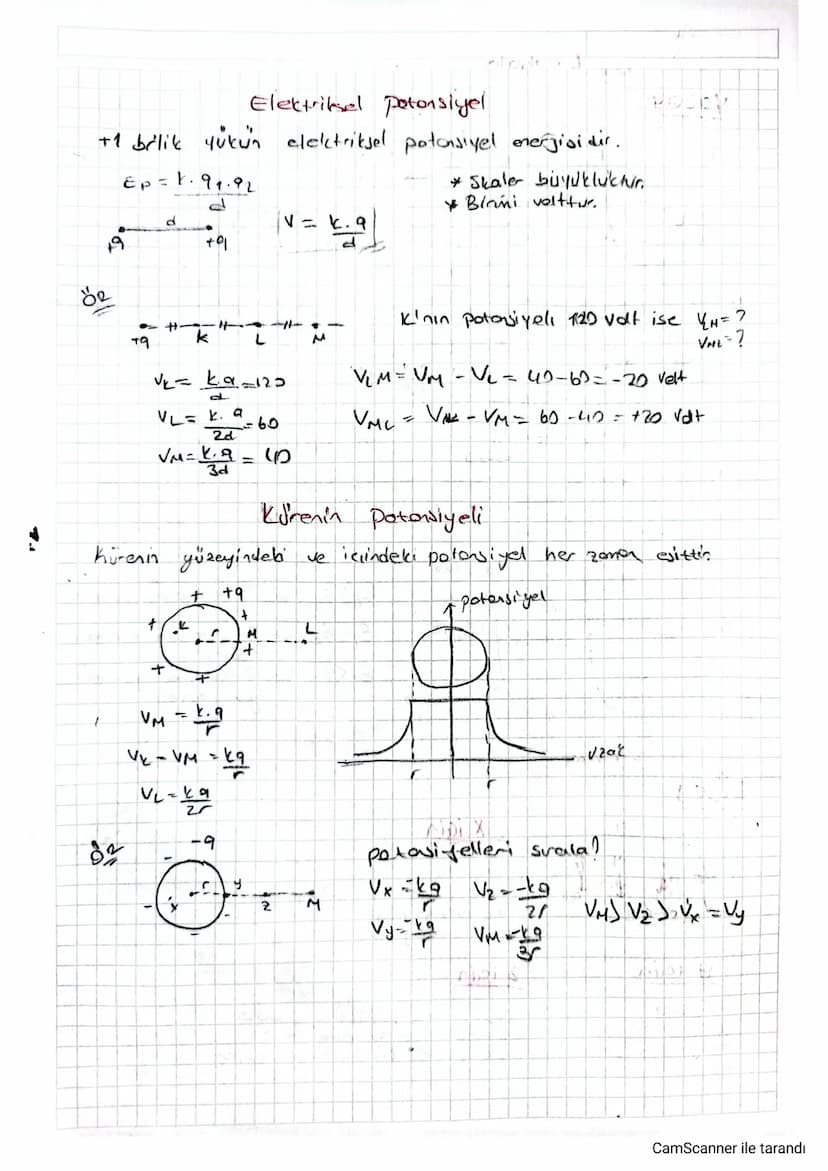 Elektriksel Potansiyel
+1 birlik yükün elektriksel potansiyel enerjisidir.
Ep = k.q1.q2 / d
* Skaler büyüklüktür.
* Birimi volttur.
d
+q +q
V = k.q / d
Ör
+q K L M
K'nın potansiyeli 120 volt ise VLM = ?
VML = ?
VK = k.q / d = 120
VL = k.q / 2d = 60
VM = k.q / 3d = 40
VLM = VM - VL = 40 - 60 = -20 Volt
VML = VL - VM = 60 - 40 = +20 Volt
Kürenin Potansiyeli
Kürenin yüzeyindeki ve içindeki potansiyel her zaman eşittir.
+ +q
+ K r M L
potansiyel
VM = k.q / r
VK = VM = kq / r
VL = kq / 2r
r r
uzak
Ör
-q
r x y z M
potansiyelleri sırala?
Vx = -kq / r
Vz = -kq / 2r
Vy = -kq / r
VM = -kq / 3r
VM > Vz > Vx = Vy
CamScanner ile tarandı